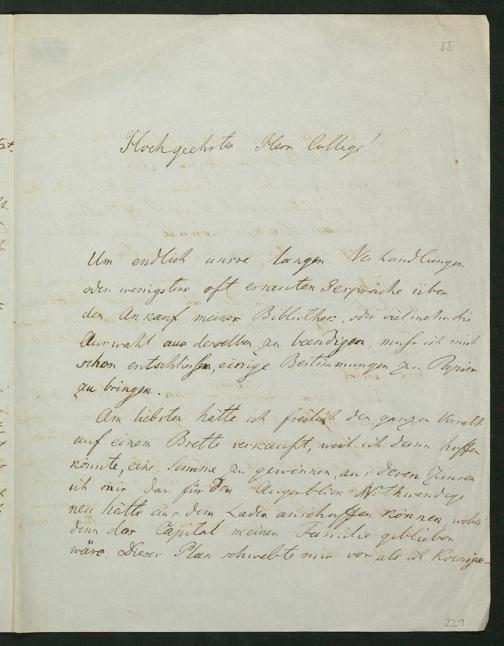 55
Hochgeehrter Herr College!
Um endlich unsre langen Verhandlungen
oder wenigstens oft erneuten Gespräche über
den Ankauf meiner Bibliothek, oder vielmehr die
Auswahl aus derselben zu beendigen, muß ich mich
schon entschließen, einige Bestimmungen zu Papier
zu bringen.
Am liebsten hätte ich freilich den ganzen Vorrath
auf einem Brette verkauft, weil ich dann hoffen
konnte, eine Summe zu gewinnen, aus deren Zinsen
ich mir das für den Augenblick Nothwendige
neu hätte aus dem Laden anschaffen können, wobei
denn das Capital meiner Familie geblieben
wäre. Dieser Plan schwebte mir vor, als ich
221